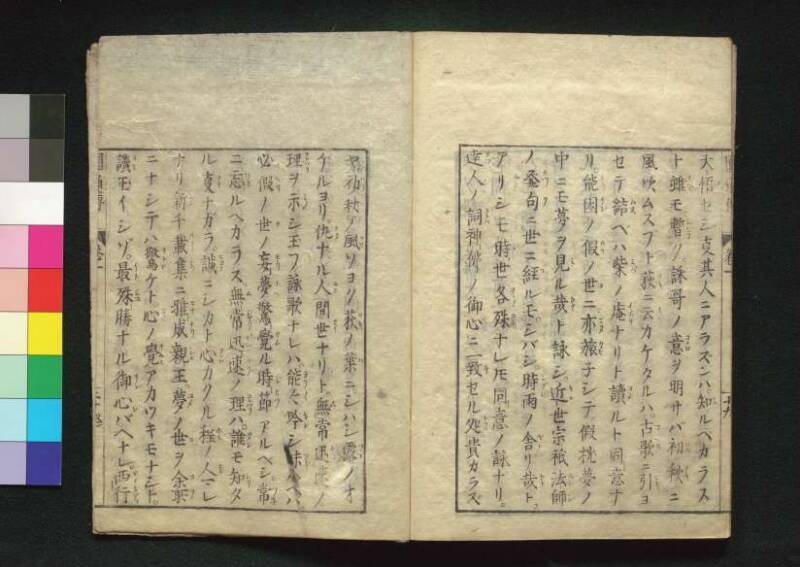 大悟セシ支其人ニアラズンハ知ルベカラス
ト雖モ暫ク詠哥ノ意ヲ明サバ初秋ニ
風吹ムスブト荻ニ云カケタルハ古歌ニ引ヨ
セテ結ベハ柴ノ庵ナリト讀ルト同意ナ
リ能因ノ假ノ世ニ亦旅子シテ假枕夢ノ
中ニモ夢ヲ見ル哉ト詠シ近世宗祇法師
ノ発句ニ世ニ経ルモシバシ時雨ノ舎リ哉ト
アリシモ時世各殊ナレ𪜈同意ノ詠ナリ
達人ノ詞神佛ノ御心ニ一致セル処貴カラス
ヤ初秋ノ風ソヨク荻ノ葉ニシハシ露ノオ
ケルヨリ仇ナル人間世ナリト無常迅速ノ
理ヲ示シ玉フ詠歌ナレハ能々吟シ味ハヘハ
必假ノ世ノ妄夢驚覚ル時節アルヘシ常
ニ忘ルヘカラス無常迅速ノ理ハ誰モ知タ
ル支ナガラ誠ニシカト心カクル程ノ人マレ
ナリ新千載集ニ雅成親王夢ノ世ヲ余所
ニナシテハ驚ケト心ノ覺アカツキモナシト
讀玉イシゾ最殊勝ナル御心バヘナレ西行
巻一